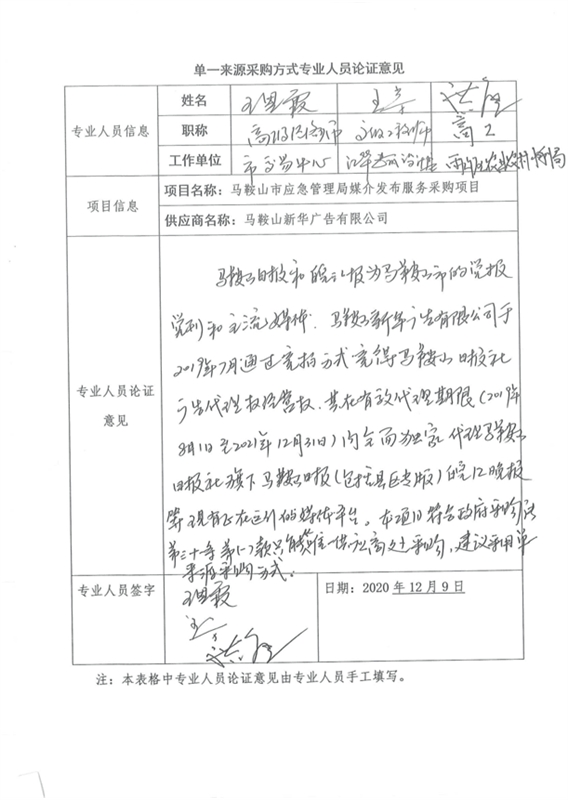 单一来源采购方式专业人员论证意见
专业人员信息
姓名
职称 高级经济师 高级工程师 高工
工作单位 市交易中心
项目信息
项目名称：马鞍山市应急管理局媒介发布服务采购项目
供应商名称：马鞍山新华广告有限公司
专业人员论证意见
马鞍山日报和皖江晚报为马鞍山市的党报
党刊和主流媒体．马鞍山新华广告有限公司于
2019年7月通过竞拍方式竞得马鞍山日报社
广告代理权经营权．其在有效代理期限（2019年
8月1日至2021年12月31日）内全面独家代理马鞍山
日报社旗下马鞍山日报（包括县区专版）皖江晚报
等现有正在运行的媒体平台。本项目符合政府采购法
第三十一条第(一)款只能从唯一供应商处采购，建议采用单
一来源采购方式。
专业人员签字
日期：2020 年 12 月 9 日
注：本表格中专业人员论证意见由专业人员手工填写。